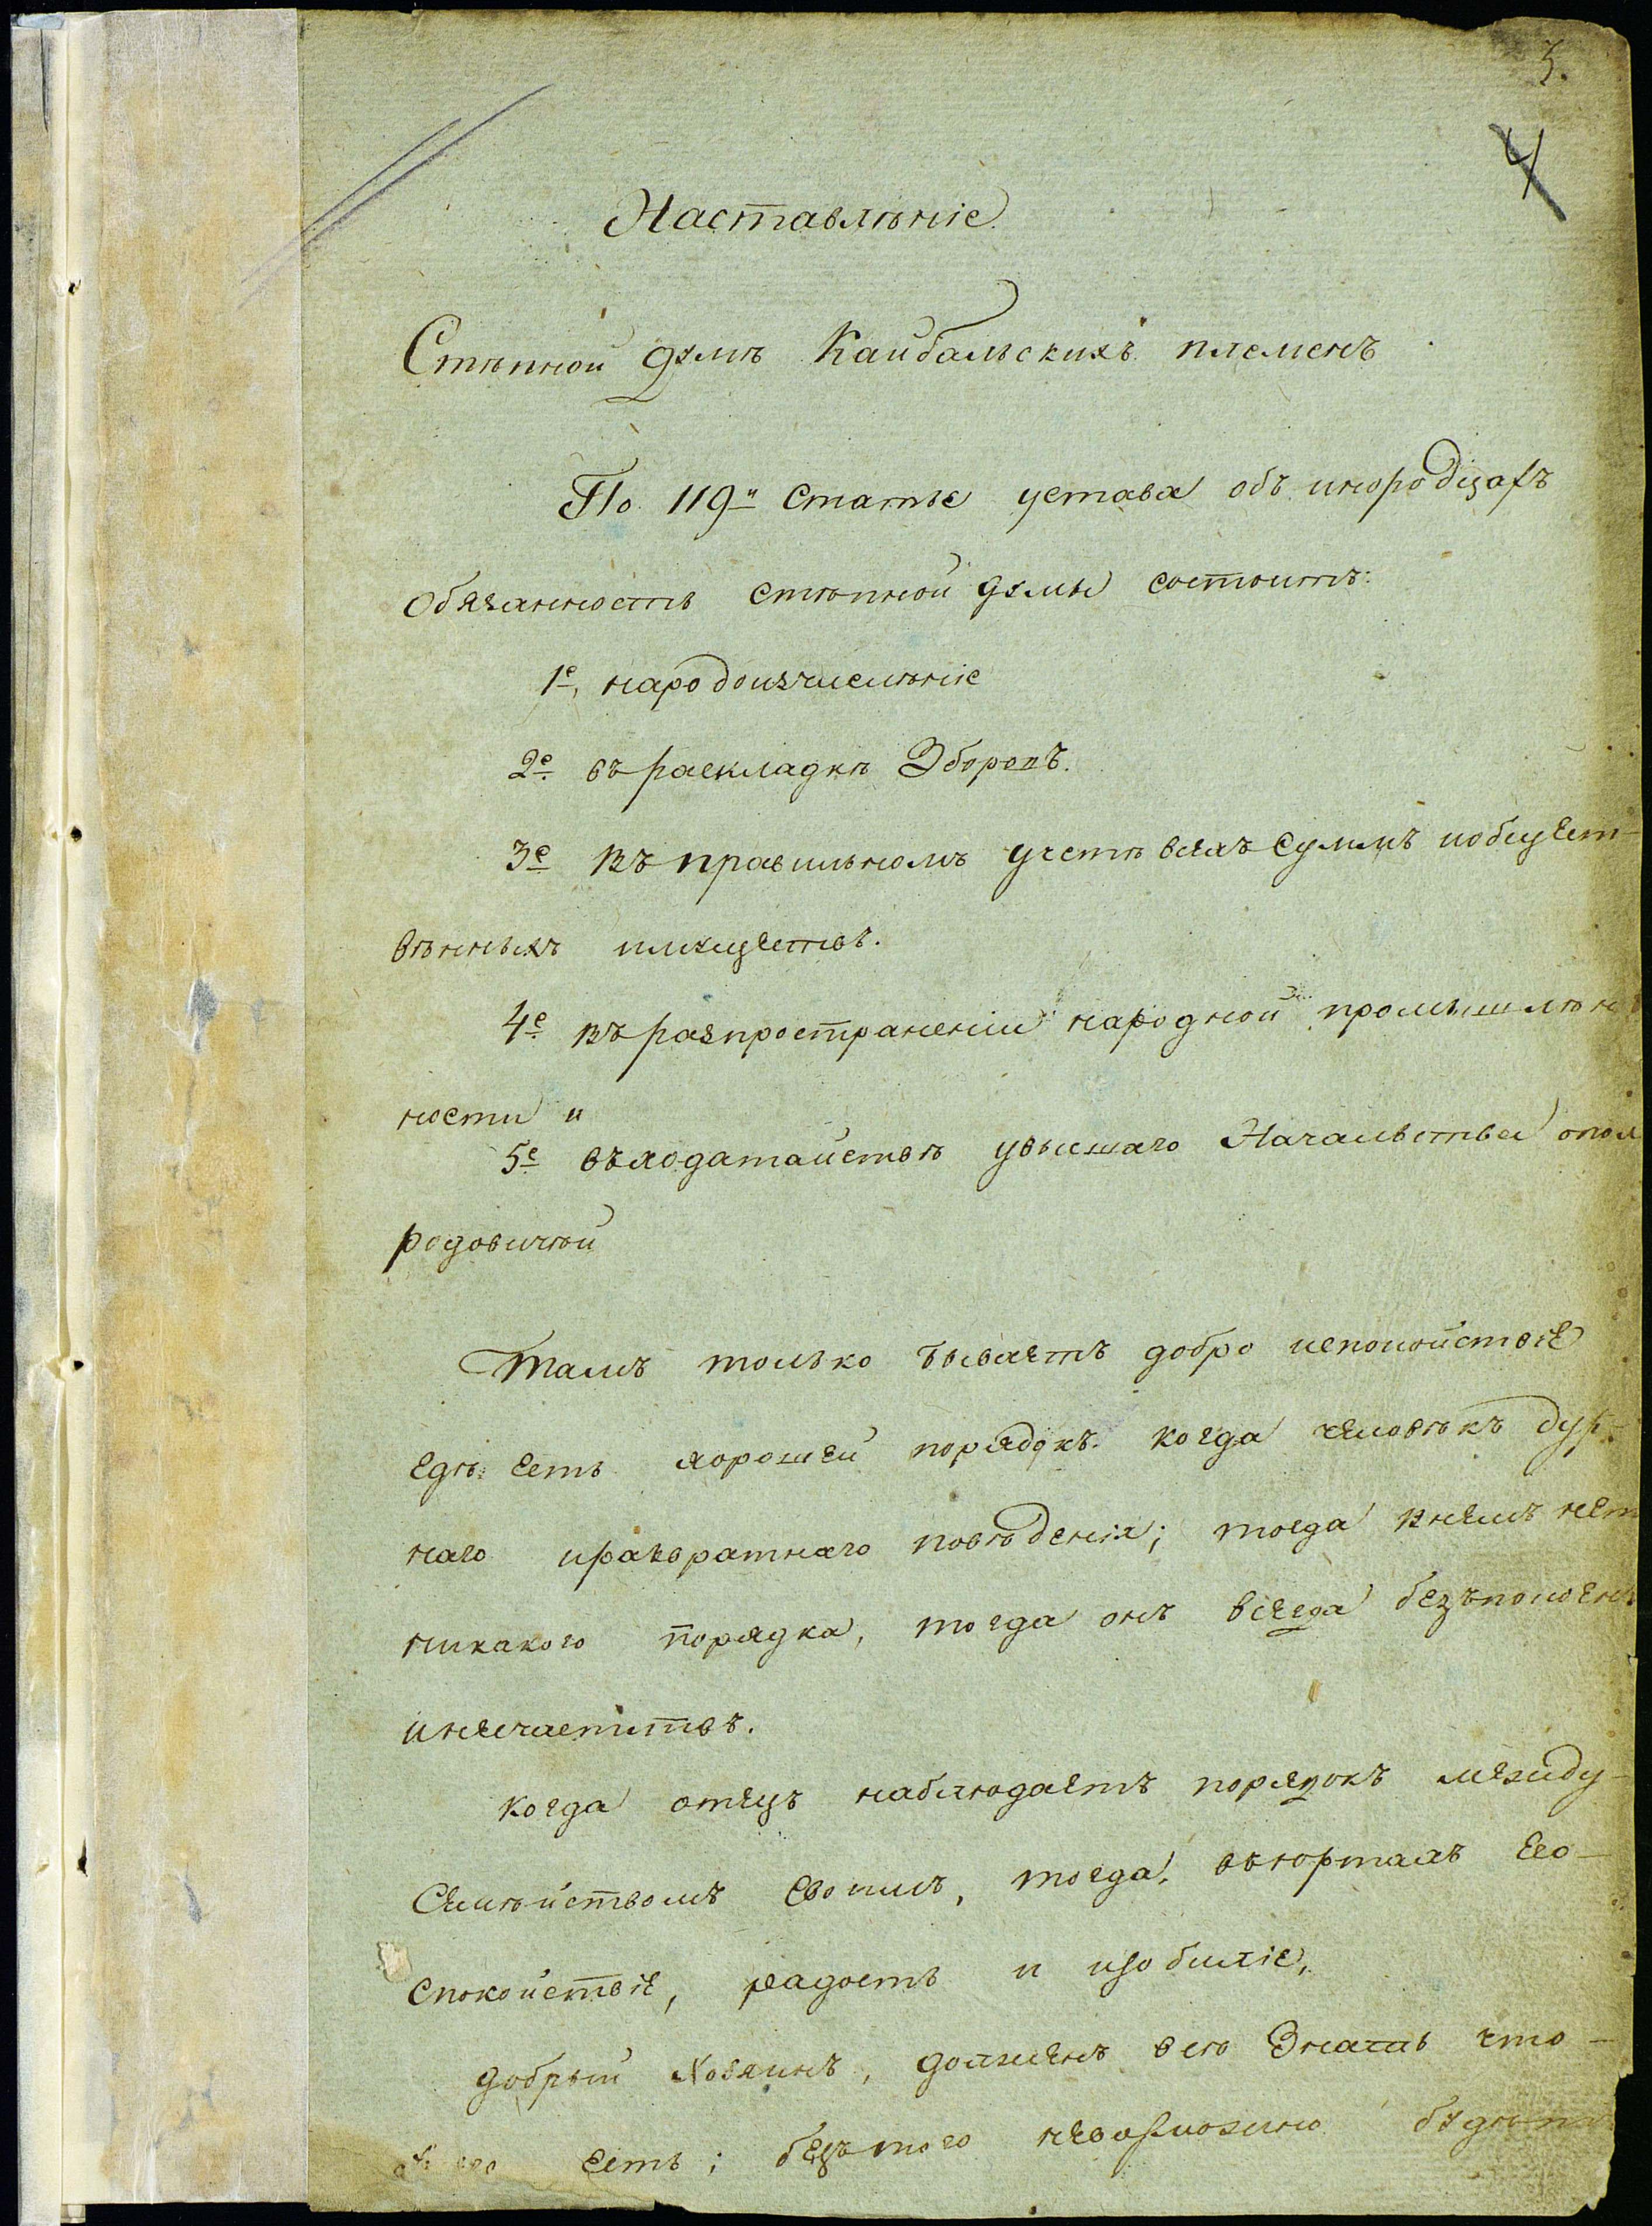 3.
4
Наставлѣніе
Стѣпной думѣ Кайбальскихъ племенъ
По 119й статье устава объ инородцахъ
Обязанность стѣпной думы состоитъ:
1е, народоизчислѣніе
2е въ раскладкѣ Зборовъ.
3е въ правильномъ учетѣ всехъ Суммъ иобщест-
вѣнныхъ имуществъ.
4е въ разпространеніи народной промышлѣн
ности и
5е въходатайствѣ увысшаго Начальства опол
родовичной
Тамъ только бываетъ добро испокойствіе
гдѣ есть хорошей порядокъ. когда человѣкъ дур-
наго иразвратнаго повѣденія; тогда внемъ нет
никакого порядка, тогда онъ всегда безъпокоенъ
инесчаститвъ.
когда отецъ наблюдаетъ порядокъ между-
Семѣйствомъ Своимъ, тогда, въюртахъ Его-
Спокойствіе, радость и изобиліе,
добрый Хозяинъ, должѣнъ всѣо Знать что-
унего есть; безътого невозможно будѣт